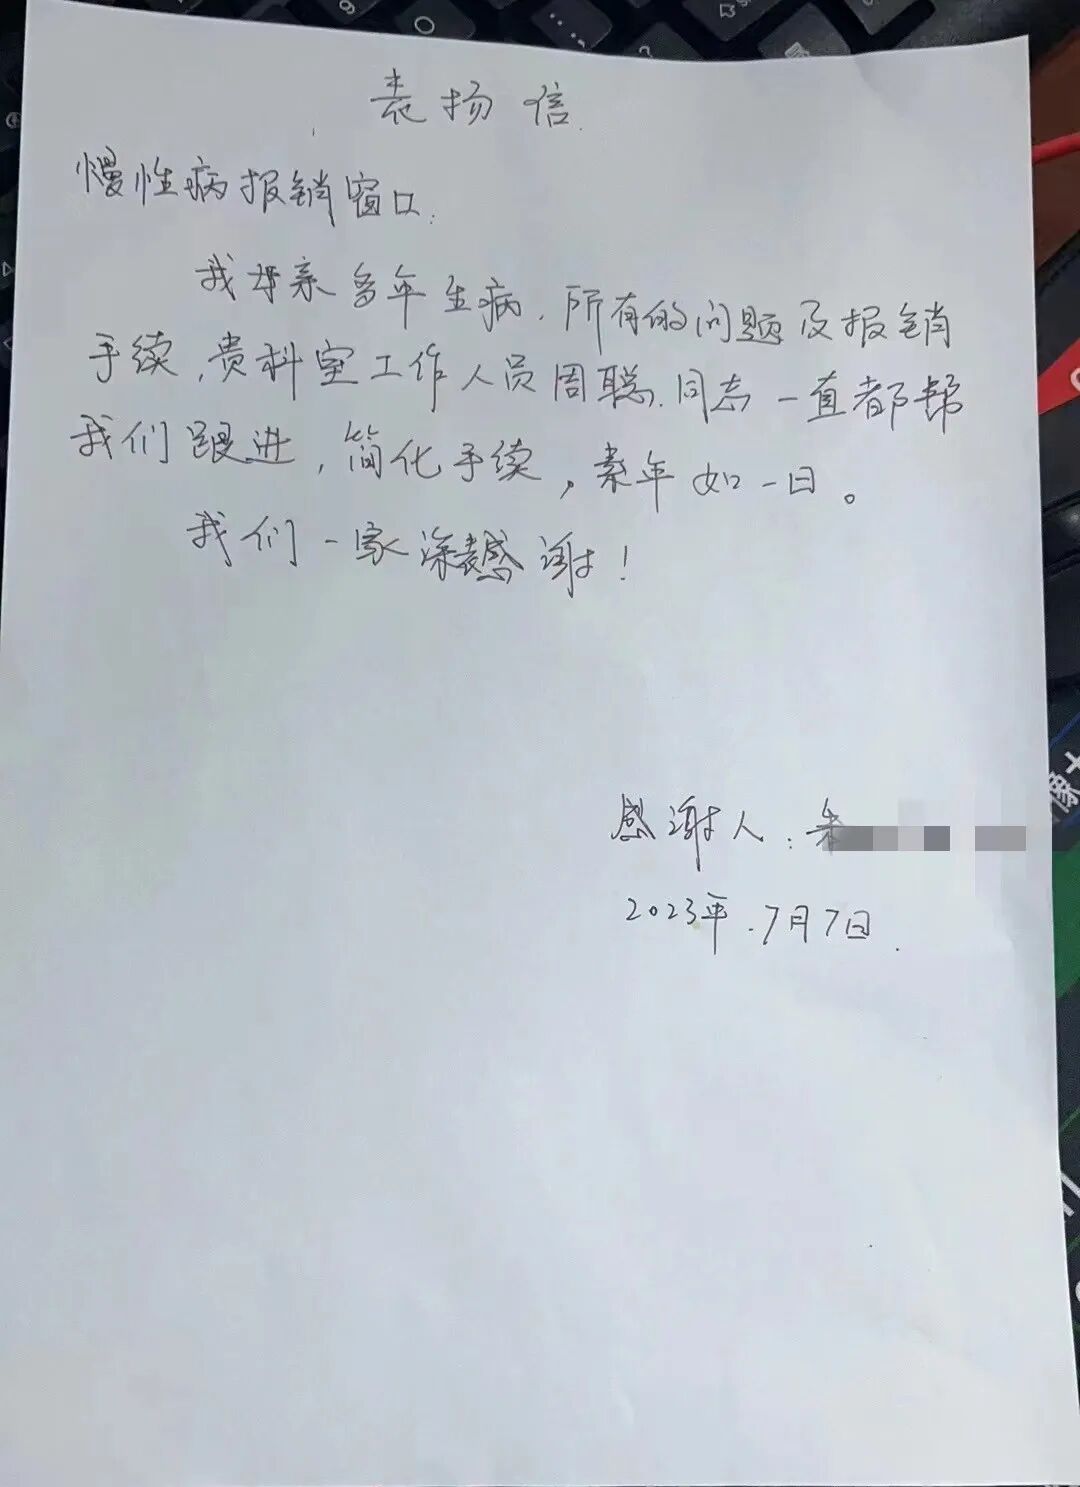 表扬信.
慢性病报销窗口:
我母亲多年生病.所有的问题及报销
手续,贵科室工作人员周聪.同志一直都帮
我们跟进,简化手续,素年如一日。
我们一家深表感谢!
感谢人:朱
2023年.7月7日.